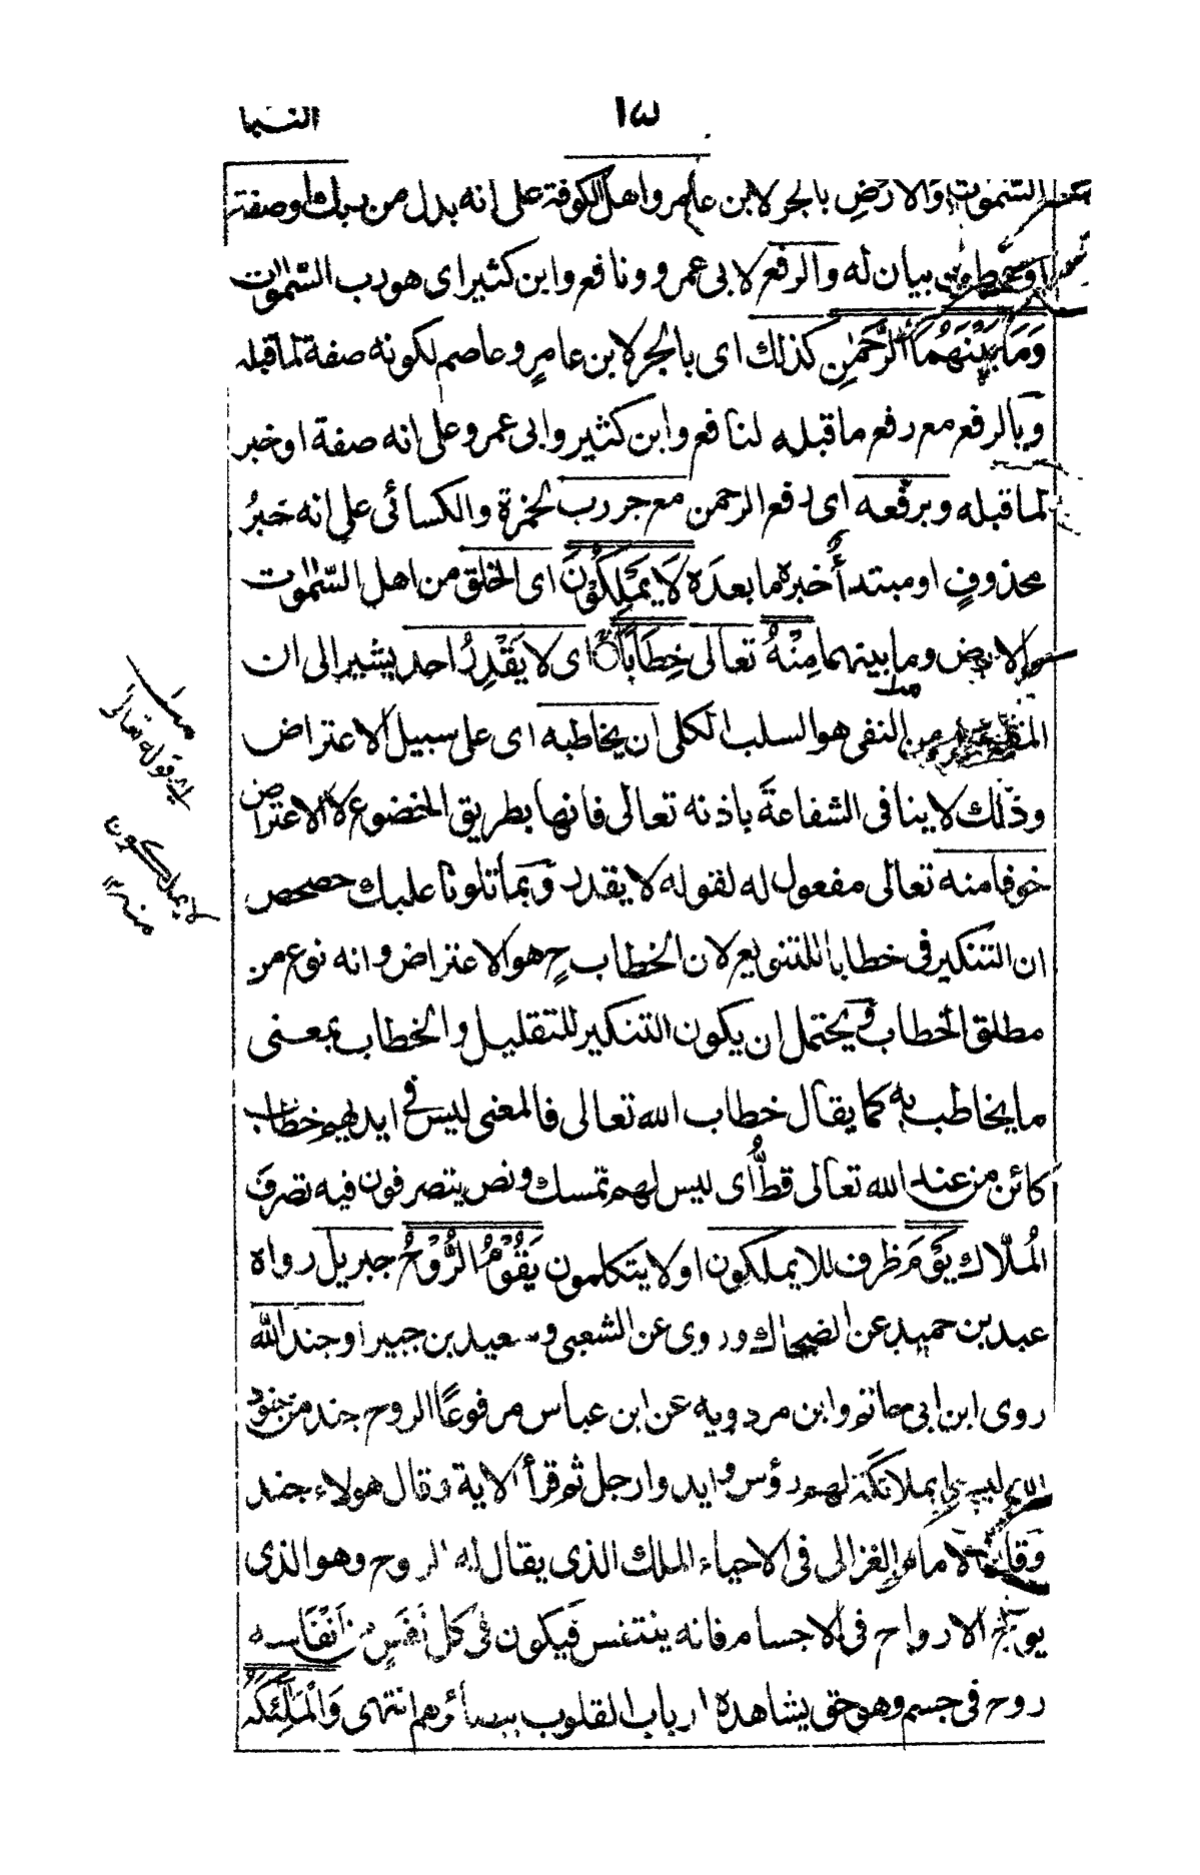 النبا
١٧
السَّمٰوٰتِ وَالْاَرْضِ بالجر لابن عامر واهل الكوفة على انه بدل من ربك او صفة
او عطف بيان له والرفع لابى عمرو ونافع وابن كثير اى هو رب السَّمٰوٰت
وَمَا بَيْنَهُمَا الرَّحْمٰنِ كذلك اى بالجر لابن عامرٍ وعاصم لكونه صفة لما قبله
وبالرفع مع رفع ما قبله لنافع وابن كثير وابى عمرو على انه صفة او خبر
لما قبله وبرفعه اى رفع الرحمن مع جر رب لحمزة والكسائى على انه خبرُ
محذوفٍ او مبتدأٌ خبره ما بعدَه لَا يَمْلِكُوْنَ اى الخلق من اهل السّمٰوٰت
والارض وما بينهما مِنْهُ تعالى خِطَابًا اى لا يَقْدِرُ احد يشير الى ان
من النفى هو السلب الكلى ان يخاطبه اى على سبيل الاعتراض
وذلك لا ينافى الشفاعةَ باذنه تعالى فانها بطريق الخضوع لا الاعتراض
خوفا منه تعالى مفعول له لقوله لا يقدر وبما تلونا عليك حصحص
ان التنكير فى خطابا للتنويع لان الخطاب ح هو الاعتراض وانه نوع من
مطلق الخطاب ويحتمل ان يكون التنكير للتقليل والخطاب بمعنى
ما يخاطب به كما يقال خطاب الله تعالى فالمعنى ليس فى ايديهم خطاب
كائن من عند الله تعالى قطُّ اى ليس لهم تمسك ونص يتصرفون فيه تصرفَ
المُلّاك يَوْمَ ظرف للا يملكون او لا يتكلمون يَقُوْمُ الرُّوْحُ جبريل رواه
عبد بن حميد عن الضحاك وروى عن الشعبى وسعيد بن جبير او جند الله
روى ابن ابى حاتم وابن مردويه عن ابن عباس مرفوعًا الروح جند من جنود
الله ليسوا بملائكة لهم رؤس وايد وارجل ثم قرأ الاية وقال هولاء جند
وقال الامام الغزالى فى الاحياء الملك الذى يقال له الروح وهو الذى
يولج الارواح فى الاجسام فانه يتنفس فيكون فى كل نَفَسٍ من اَنْفَاسه
روح فى جسم وهو حق يشاهده ارباب القلوب ببصائرهم انتهى وَالْمَلٰٓئِكَةُ
اى قوله تعالى
لا يملكون
منه ١٢